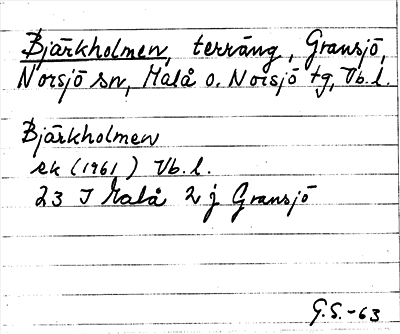 Bjärkholmen, terräng, Gransjö,
Norsjö sn, Malå o. Norsjö tg, Vb. l.
Bjärkholmen
ek (1961) Vb. l.
23 I Malå 2 j Gransjö
G.S.-63